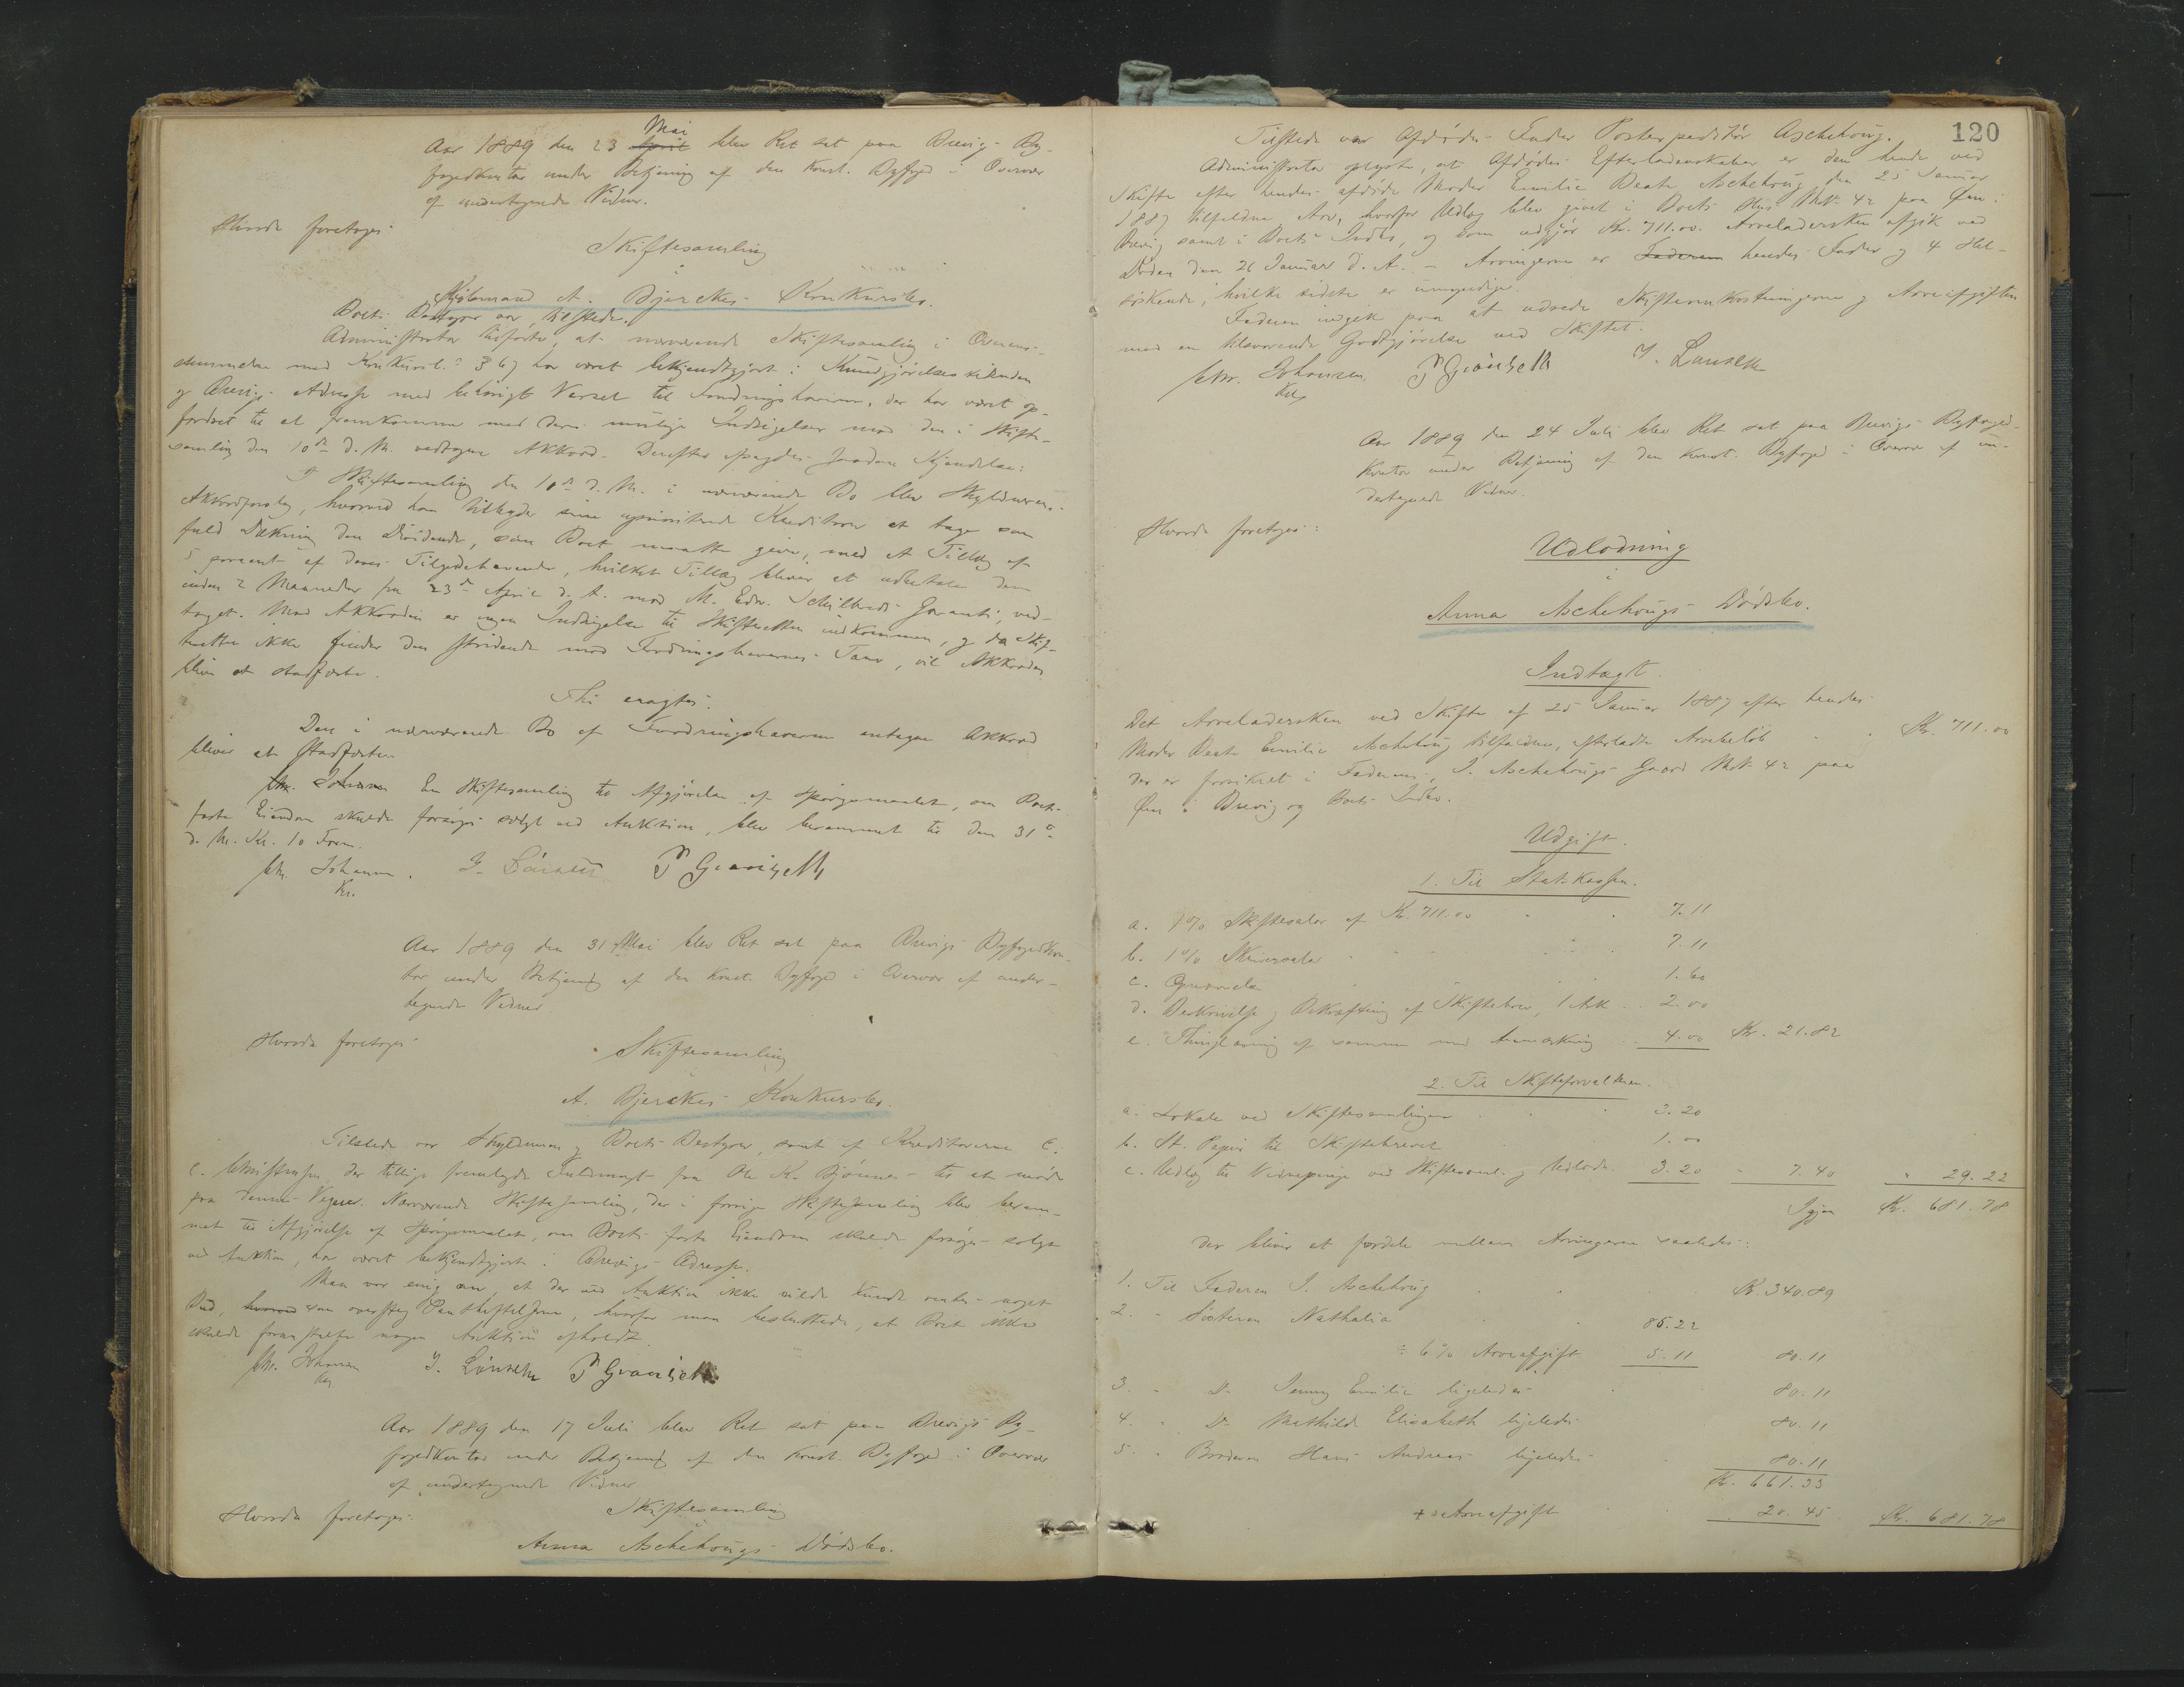 Aar 1889 den 23 April Mai blev Ret sat paa Brevigs By-
fogedkontor under Betjening af den konst. Byfoged i Overvær
af undertegnede Vidner.
Hvorda foretoges
Skiftesamling
i
Kjøbmand A. Bjerckes Konkursbo.
Boets Bestyrer var tilstede.
Administrator tilførte, at nærværende Skiftesamling i Overens-
stemmelse med Konkursl.s § 67 har været bekjendtgjort i Kundgjørelsestidenden
og Brevigs Adresse med behørigt Varsel til Fordringshaverne, der har været op-
fordret til at fremkomme med deres mulige Indsigelser mod den i Skifte-
samling den 10de d. M. vedtagne Akkord. Derefter afsagdes saadan Kjendelse:
I Skiftesamling den 10de d. M. i nærværende Bo blev Skyldnerens
Akkordforslag, hvorved han tilbyder sine uprioriterede Kreditorer at tage som
fuld Dækning den Dividende, som Boet maatte give, med et Tillæg af
5 procent af deres Tilgodehavende, hvilket Tillæg bliver at udbetale dem
inden 2 Maaneder fra 23de April d. A. mod M. Edv. Garanti, ved-
taget. Mod Akkorden er ingen Indsigelse til Skifteretten indkommen, og da Skif-
teretten ikke finder den stridende mod Fordringshavernes Tarv, vil Akkorden
blive at stadfæste.
Thi eragtes:
Den i nærværende Bo af Fordringshaverne antagne Akkord
bliver at stadfæste.
Chr. Johansen En Skiftesamling til Afgjørelse af Spørgsmaalet, om Boets
faste Eiendom skulde forsøges solgt ved Auktion, blev berammet til den 31te
d. M. Kl. 10 Form.
Chr. Johansen. J. Larsen P Gravisell
Kst.
Aar 1889 den 31 Mai blev Ret sat paa Brevigs Byfogedkon-
tor under Betjening af den konst. Byfoged i Overvær af under-
tegnede Vidner
Hvorda foretoges
Skiftesamling
i
A. Bjerckes Konkursbo.
Tilstede var Skyldneren og Boets Bestyrer, samt af Kreditorerne C.
C. Christensen, der tillige fremlagde Fuldmagt fra Ole K. Bjønnes til at møde
paa dennes Vegne. Nærværende Skiftesamling, der i forrige Skiftesamling blev beram-
met til Afgjørelse af Spørgsmaalet, om Boets faste Eiendom skulde forsøges solgt
ved Auktion, har været bekjendtgjort i Brevigs Adresse.
Man var enig om, at der ved Auktion ikke vilde kunde ventes noget
Bud, hvorved som oversteg Panteheftelserne, hvorfor man besluttede, at Boet ikke
skulde foranstalte nogen Auktion afholdt
Chr. Johansen J. Larsen P Gravisell
Kst.
Aar 1889 den 17 Juli blev Ret sat paa Brevigs By-
fogedkontor under Betjening af den konst. Byfoged i Overvær
af undertegnede Vidner
Hvorda foretoges:
Skiftesamling
i
Anna Aschehougs Dødsbo.
120
Tilstede var Afdødes Fader Postexpeditør Aschehoug.
Administrator oplyste, at Afdødes Efterladenskaber er den hende ved
Skifte efter hendes afdøde Moder Emilie Beate Aschehoug den 25 Januar
1887 tilfaldne Arv, hvorfor Udlæg blev givet i Boets Hus Mt№ 42 paa Øen i
Brevig samt i Boets Indbo, og som udgjør Kr. 711.00. Arveladersken afgik ved
Døden den 26 Januar d. A. - Arvingerne er Faderen hendes Fader og 4 Hel-
søskende, hvilke sidste er umyndige.
Faderen indgik paa at udrede Skifteomkostningerne og Arveafgiften
mod en tilsvarende Godtgjørelse ved Skiftet.
Chr. Johansen P Gravisell J. Larsen
Kst.
Aar 1889 den 24 Juli blev Ret sat paa Brevigs Byfoged-
kontor under Betjening af den konst. Byfoged i Overvær af un-
dertegnede Vidner.
Hvorda foretoges:
Udlodning
i
Anna Aschehougs Dødsbo.
Indtægt.
Det Arveladersken ved Skifte af 25 Januar 1887 efter hendes
Moder Beate Emilie Aschehoug tilfaldne, efterladte Arvebeløb Kr. 711.00
der er forsikret i Faderens, J. Aschehougs Gaard Mt№ 42 paa
Øen i Brevig og Boets Indbo.
Udgift.
1. Til Statskassen.
a. 1% Skiftesalær af Kr. 711.00 7.11
b. 1% Skriversalær 7.11
c. 1.60
d. Beskrivelse og Bekræftning af Skiftebrev, 1 Ark 2.00
e. Thinglæsning af samme med Anmærkning 4.00 Kr. 21.82
2. Til Skifteforvalteren.
a. Lokale ved Skiftesamlingen 3.20
b. St. Papir til Skiftebrevet 1.00
c. Udlæg til Vidnepenge ved Skiftesaml. og Udlodn. 3.20 " 7.40 " 29.22
Igjen Kr. 681.78
der bliver at fordele mellem Arvingerne saaledes:
1. Til Faderen J. Aschehoug Kr. 340.89
2. " Søsteren Nathalia 85.22
÷ 6% Arveafgift 5.11 80.11
3. " Do Jenny Emilie ligeledes 80.11
4. " Do Mathilde Elisabeth ligeledes 80.11
5. " Broderen Hans Andreas ligeledes 80.11
Kr. 661.33
+ Arveafgift 20.45 Kr. 681.78